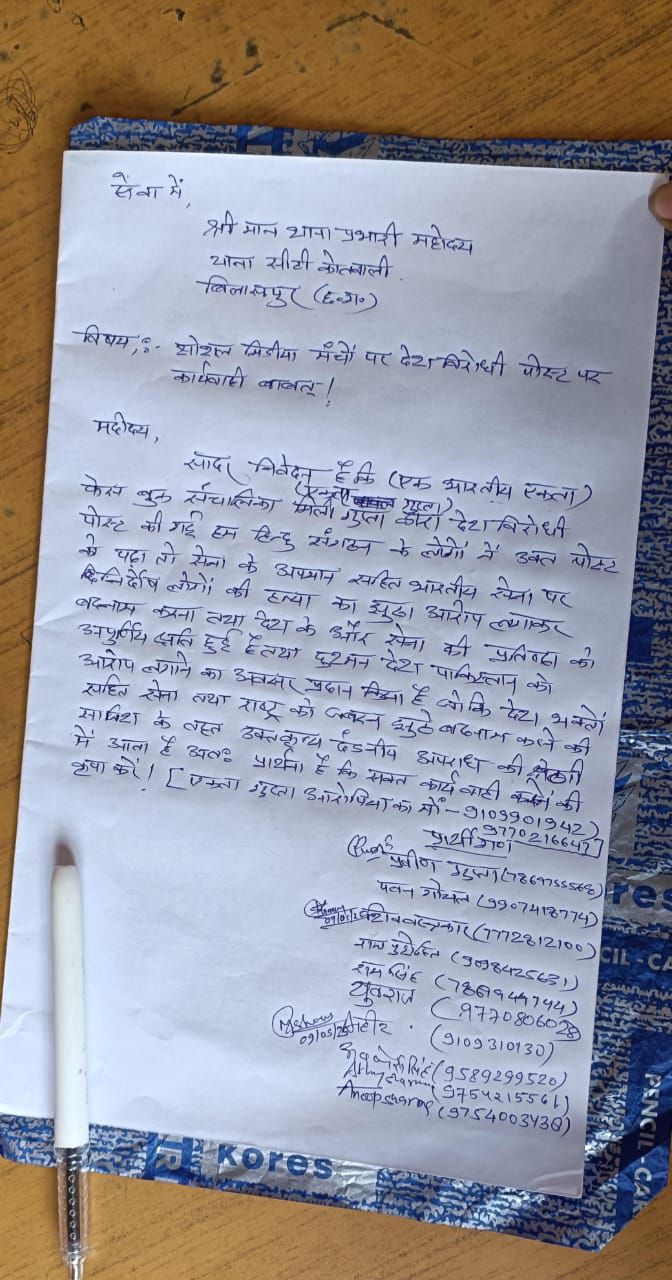 सेवा में,
श्री मान थाना प्रभारी महोदय
थाना सीटी कोतवाली
बिलासपुर (छ.ग.)
विषय,:- शोशल मिडीया मंचों पर देश विरोधी पोस्ट पर
कार्यवाही बाबत् !
महोदय,
सादर निवेदन है कि (एक भारतीय एकता)
फेस बुक संचालिका मिली गुप्ता (एकता गुप्ता) द्वारा देश विरोधी
पोस्ट की गई हम हिन्दु संगठन के लोगों ने उक्त पोस्ट
को पढा तो सेना के अपमान सहित भारतीय सेना पर
निर्दोष लोगों की हत्या का झुठा आरोप लगाकर
बदनाम करना तथा देश के और सेना की प्रतिष्ठा को
अपुर्णीय क्षति हुई है तथा दुश्मन देश पाकिस्तान को
आरोप लगाने का अवसर प्रदान किया है जोकि देश भक्तों
सहित सेना तथा राष्ट्र को जबरन झुठे बदनाम करने की
साजिश के तहत उक्त कृत्य दंडनीय अपराध की श्रेणी
में आता है अतः प्रार्थना है कि सख्त कार्यवाही करने की
कृपा करें ! [एकता गुप्ता आरोपिया का मो- 9109901942)
9770216647]
प्रार्थीगण
प्रवीण गुप्ता (7869755568)
पवन गोयल (9907418774)
(7772812100)
राम पुरोहित (9098425631)
राम सिंह (7869944794)
युवराज (9770806028
09/05/25 (9109310130)
सिंह (9589299520)
sharma (9754215561)
Anoop sharma (9754003438)
Kores
Kores
PENCIL